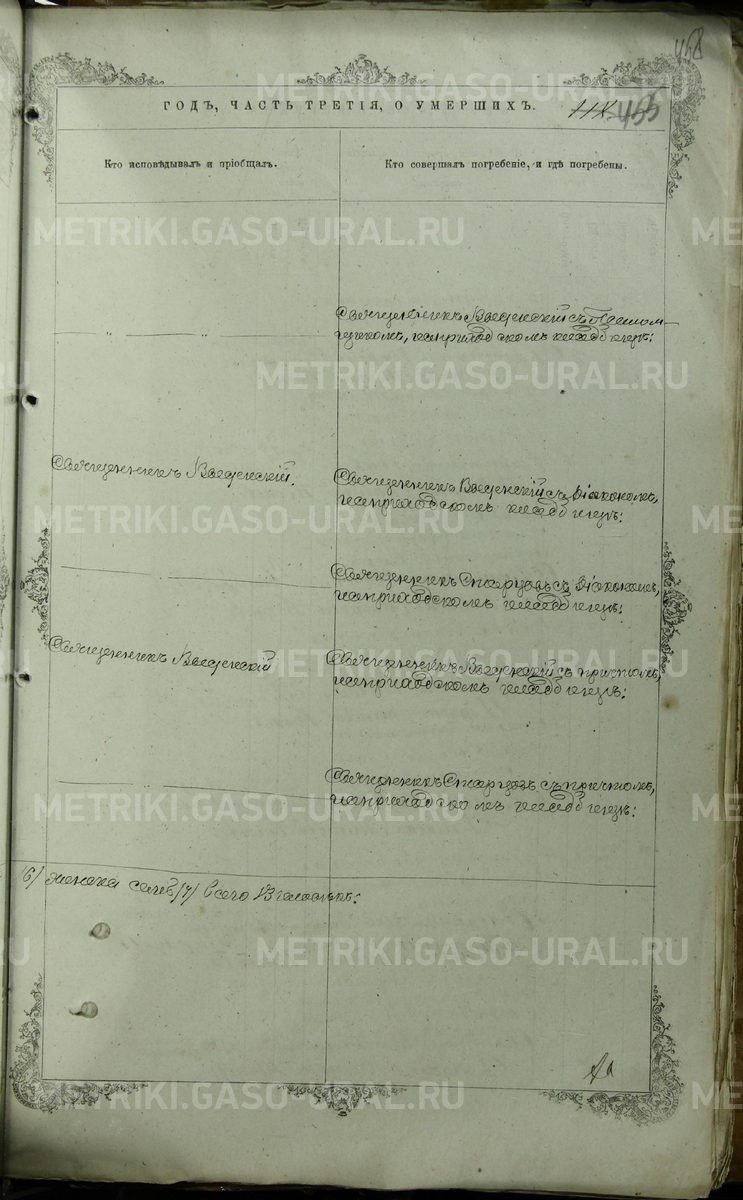 458
ГОДЪ, ЧАСТЬ ТРЕТІЯ, О УМЕРШИХЪ.
455
Кто исповѣдывалъ и пріобщалъ.
Кто совершалъ погребеніе, и гдѣ погребены.
Священникъ Введенскій съ
на приходскомъ кладбищѣ:
Священникъ Введенскій.
Священникъ Введенскій съ діакономъ,
на приходскомъ кладбищѣ:
Священникъ Старцовъ съ діакономъ,
на приходскомъ кладбищѣ:
Священникъ Введенскій
Священникъ Введенскій съ причтомъ,
на приходскомъ кладбищѣ:
Священникъ Старцовъ съ причтомъ,
на приходскомъ кладбищѣ:
6/ женска семь /7/ всего
METRIKI.GASO-URAL.RU